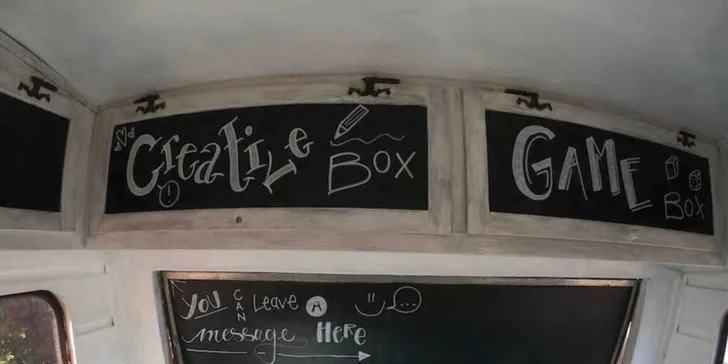 Creative
Box
GAME
Box
you CAN Leave A
message Here